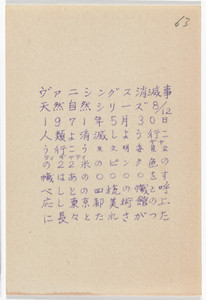 63
ヴァニシングス消滅事
天然自然シリーズ 8/12
1971年5月30日
人類よ消滅しよう行こ
う行こう 文明委員会
の22米のピンク色の
幟はあの〇〇〇〇をす
べしとの四枚の幟と呼
応し東京都美術館の
に長々とたれさがった